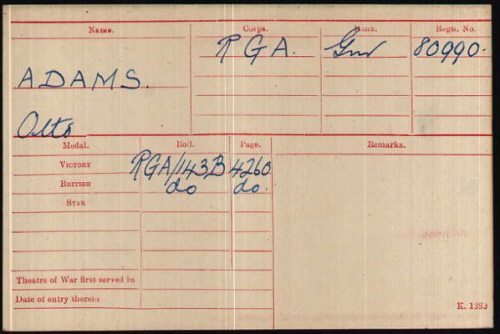 Name. Corps. Rank. Regtl. No.
R G A. Gnr 80990.
ADAMS.
Otto
Medal. Roll. Page. Remarks.
VICTORY RGA/143B 4260
BRITISH do do.
STAR
Theatre of War first served in
Date of entry therein
K. 1380